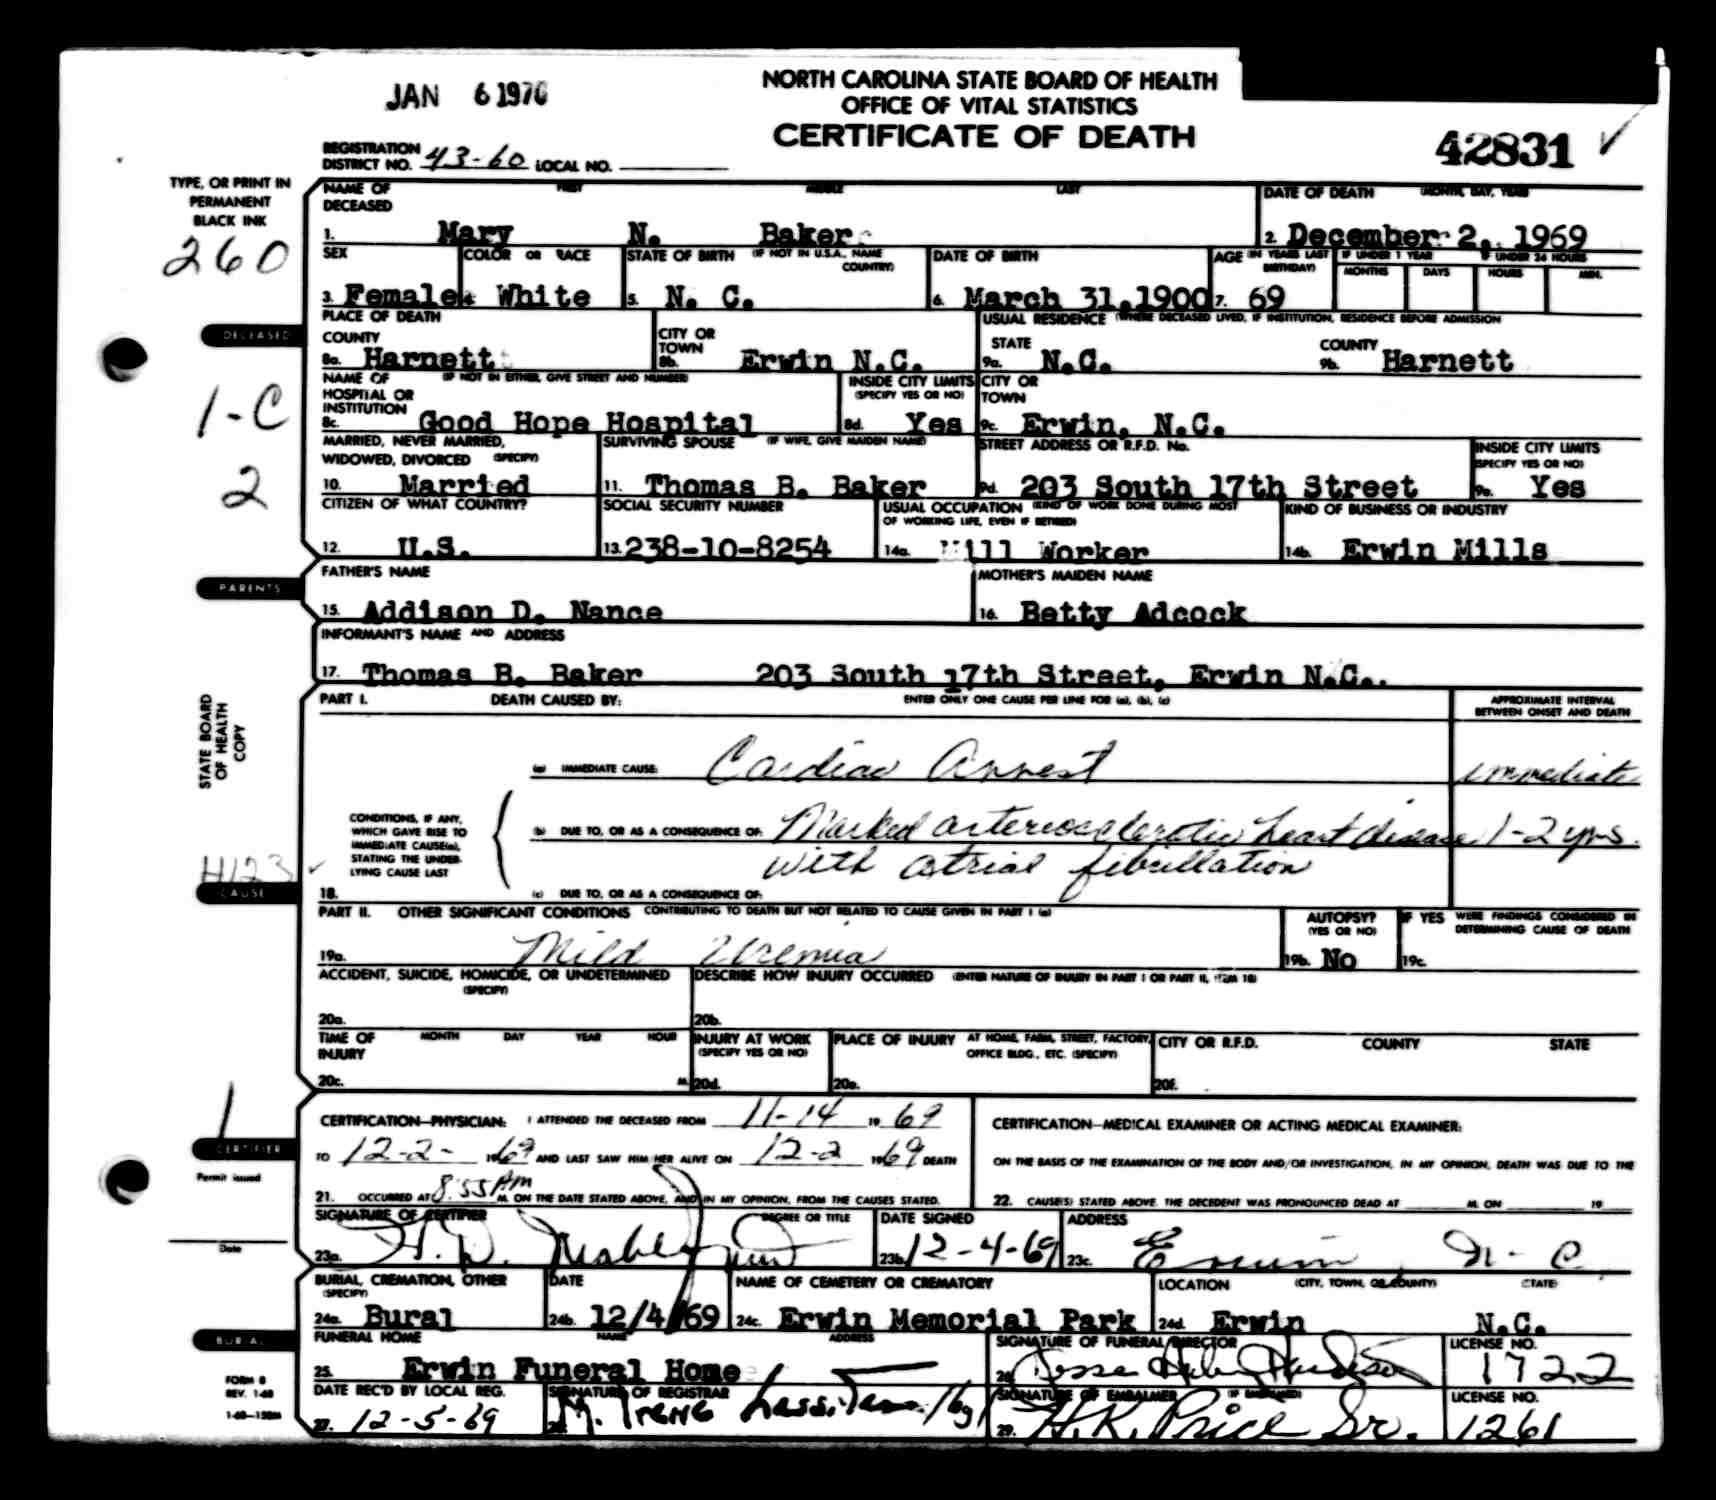 JAN 6 1970
NORTH CAROLINA STATE BOARD OF HEALTH
OFFICE OF VITAL STATISTICS
CERTIFICATE OF DEATH
42831 ✓
REGISTRATION
DISTRICT NO. 43-60 LOCAL NO.
TYPE, OR PRINT IN
PERMANENT
BLACK INK
260
DECEASED
1-C
2
NAME OF DECEASED FIRST MIDDLE LAST
1. Mary N. Baker
DATE OF DEATH (MONTH, DAY, YEAR)
2. December 2, 1969
SEX
3. Female
COLOR OR RACE
4. White
STATE OF BIRTH (IF NOT IN U.S.A., NAME COUNTRY)
5. N. C.
DATE OF BIRTH
6. March 31, 1900
AGE (IN YEARS LAST BIRTHDAY)
7. 69
IF UNDER 1 YEAR
MONTHS DAYS
IF UNDER 24 HOURS
HOURS MIN.
PLACE OF DEATH
COUNTY
8a. Harnett
CITY OR TOWN
8b. Erwin N.C.
USUAL RESIDENCE (WHERE DECEASED LIVED, IF INSTITUTION, RESIDENCE BEFORE ADMISSION
STATE
9a. N.C.
COUNTY
9b. Harnett
NAME OF HOSPITAL OR INSTITUTION (IF NOT IN EITHER, GIVE STREET AND NUMBER)
8c. Good Hope Hospital
INSIDE CITY LIMITS (SPECIFY YES OR NO)
8d. Yes
CITY OR TOWN
9c. Erwin, N.C.
MARRIED, NEVER MARRIED, WIDOWED, DIVORCED (SPECIFY)
10. Married
SURVIVING SPOUSE (IF WIFE, GIVE MAIDEN NAME)
11. Thomas B. Baker
STREET ADDRESS OR R.F.D. No.
9d. 203 South 17th Street
INSIDE CITY LIMITS (SPECIFY YES OR NO)
9e. Yes
CITIZEN OF WHAT COUNTRY?
12. U.S.
SOCIAL SECURITY NUMBER
13. 238-10-8254
USUAL OCCUPATION (KIND OF WORK DONE DURING MOST OF WORKING LIFE, EVEN IF RETIRED)
14a. Mill Worker
KIND OF BUSINESS OR INDUSTRY
14b. Erwin Mills
PARENTS
FATHER'S NAME
15. Addison D. Nance
MOTHER'S MAIDEN NAME
16. Betty Adcock
INFORMANT'S NAME AND ADDRESS
17. Thomas B. Baker 203 South 17th Street, Erwin N.C.
STATE BOARD
OF HEALTH
COPY
PART I. DEATH CAUSED BY: ENTER ONLY ONE CAUSE PER LINE FOR (a), (b), (c)
APPROXIMATE INTERVAL
BETWEEN ONSET AND DEATH
(a) IMMEDIATE CAUSE: Cardiac Arrest immediate
CONDITIONS, IF ANY,
WHICH GAVE RISE TO
IMMEDIATE CAUSE(a),
STATING THE UNDER-
LYING CAUSE LAST
(b) DUE TO, OR AS A CONSEQUENCE OF: Marked arteriosclerotic heart disease 1-2 yrs.
with atrial fibrillation
18. (c) DUE TO, OR AS A CONSEQUENCE OF:
H123 ✓
CAUSE
PART II. OTHER SIGNIFICANT CONDITIONS CONTRIBUTING TO DEATH BUT NOT RELATED TO CAUSE GIVEN IN PART I (a)
19a. Mild Uremia
AUTOPSY? (YES OR NO)
19b. No
IF YES WERE FINDINGS CONSIDERED IN DETERMINING CAUSE OF DEATH
19c.
ACCIDENT, SUICIDE, HOMICIDE, OR UNDETERMINED (SPECIFY)
20a.
DESCRIBE HOW INJURY OCCURRED (ENTER NATURE OF INJURY IN PART I OR PART II, ITEM 18)
20b.
TIME OF INJURY MONTH DAY YEAR HOUR
20c. M.
INJURY AT WORK (SPECIFY YES OR NO)
20d.
PLACE OF INJURY AT HOME, FARM, STREET, FACTORY, OFFICE BLDG., ETC. (SPECIFY)
20e.
CITY OR R.F.D. COUNTY STATE
20f.
1
CERTIFIER
Permit issued
Date
CERTIFICATION—PHYSICIAN: I ATTENDED THE DECEASED FROM 11-14 19 69
TO 12-2- 1969 AND LAST SAW HIM/HER ALIVE ON 12-2 1969 DEATH
21. OCCURRED AT 8:55 AM M. ON THE DATE STATED ABOVE, AND IN MY OPINION, FROM THE CAUSES STATED.
CERTIFICATION—MEDICAL EXAMINER OR ACTING MEDICAL EXAMINER:
ON THE BASIS OF THE EXAMINATION OF THE BODY AND/OR INVESTIGATION, IN MY OPINION, DEATH WAS DUE TO THE
22. CAUSE(S) STATED ABOVE. THE DECEDENT WAS PRONOUNCED DEAD AT M. ON 19
SIGNATURE OF CERTIFIER DEGREE OR TITLE
23a.
DATE SIGNED
23b. 12-4-69
ADDRESS
23c. Erwin N-C.
BURIAL, CREMATION, OTHER (SPECIFY)
24a. Bural
DATE
24b. 12/4/69
NAME OF CEMETERY OR CREMATORY
24c. Erwin Memorial Park
LOCATION (CITY, TOWN, OR COUNTY) (STATE)
24d. Erwin N.C.
BURIAL
FUNERAL HOME NAME ADDRESS
25. Erwin Funeral Home
SIGNATURE OF FUNERAL DIRECTOR
26. Jesse
LICENSE NO.
1722
FORM 8
REV. 1-68
1-68—150M
DATE REC'D BY LOCAL REG.
27. 12-5-69
SIGNATURE OF REGISTRAR
28. M. Irene
SIGNATURE OF EMBALMER (IF EMBALMED)
29. H.K. Price Sr.
LICENSE NO.
1261